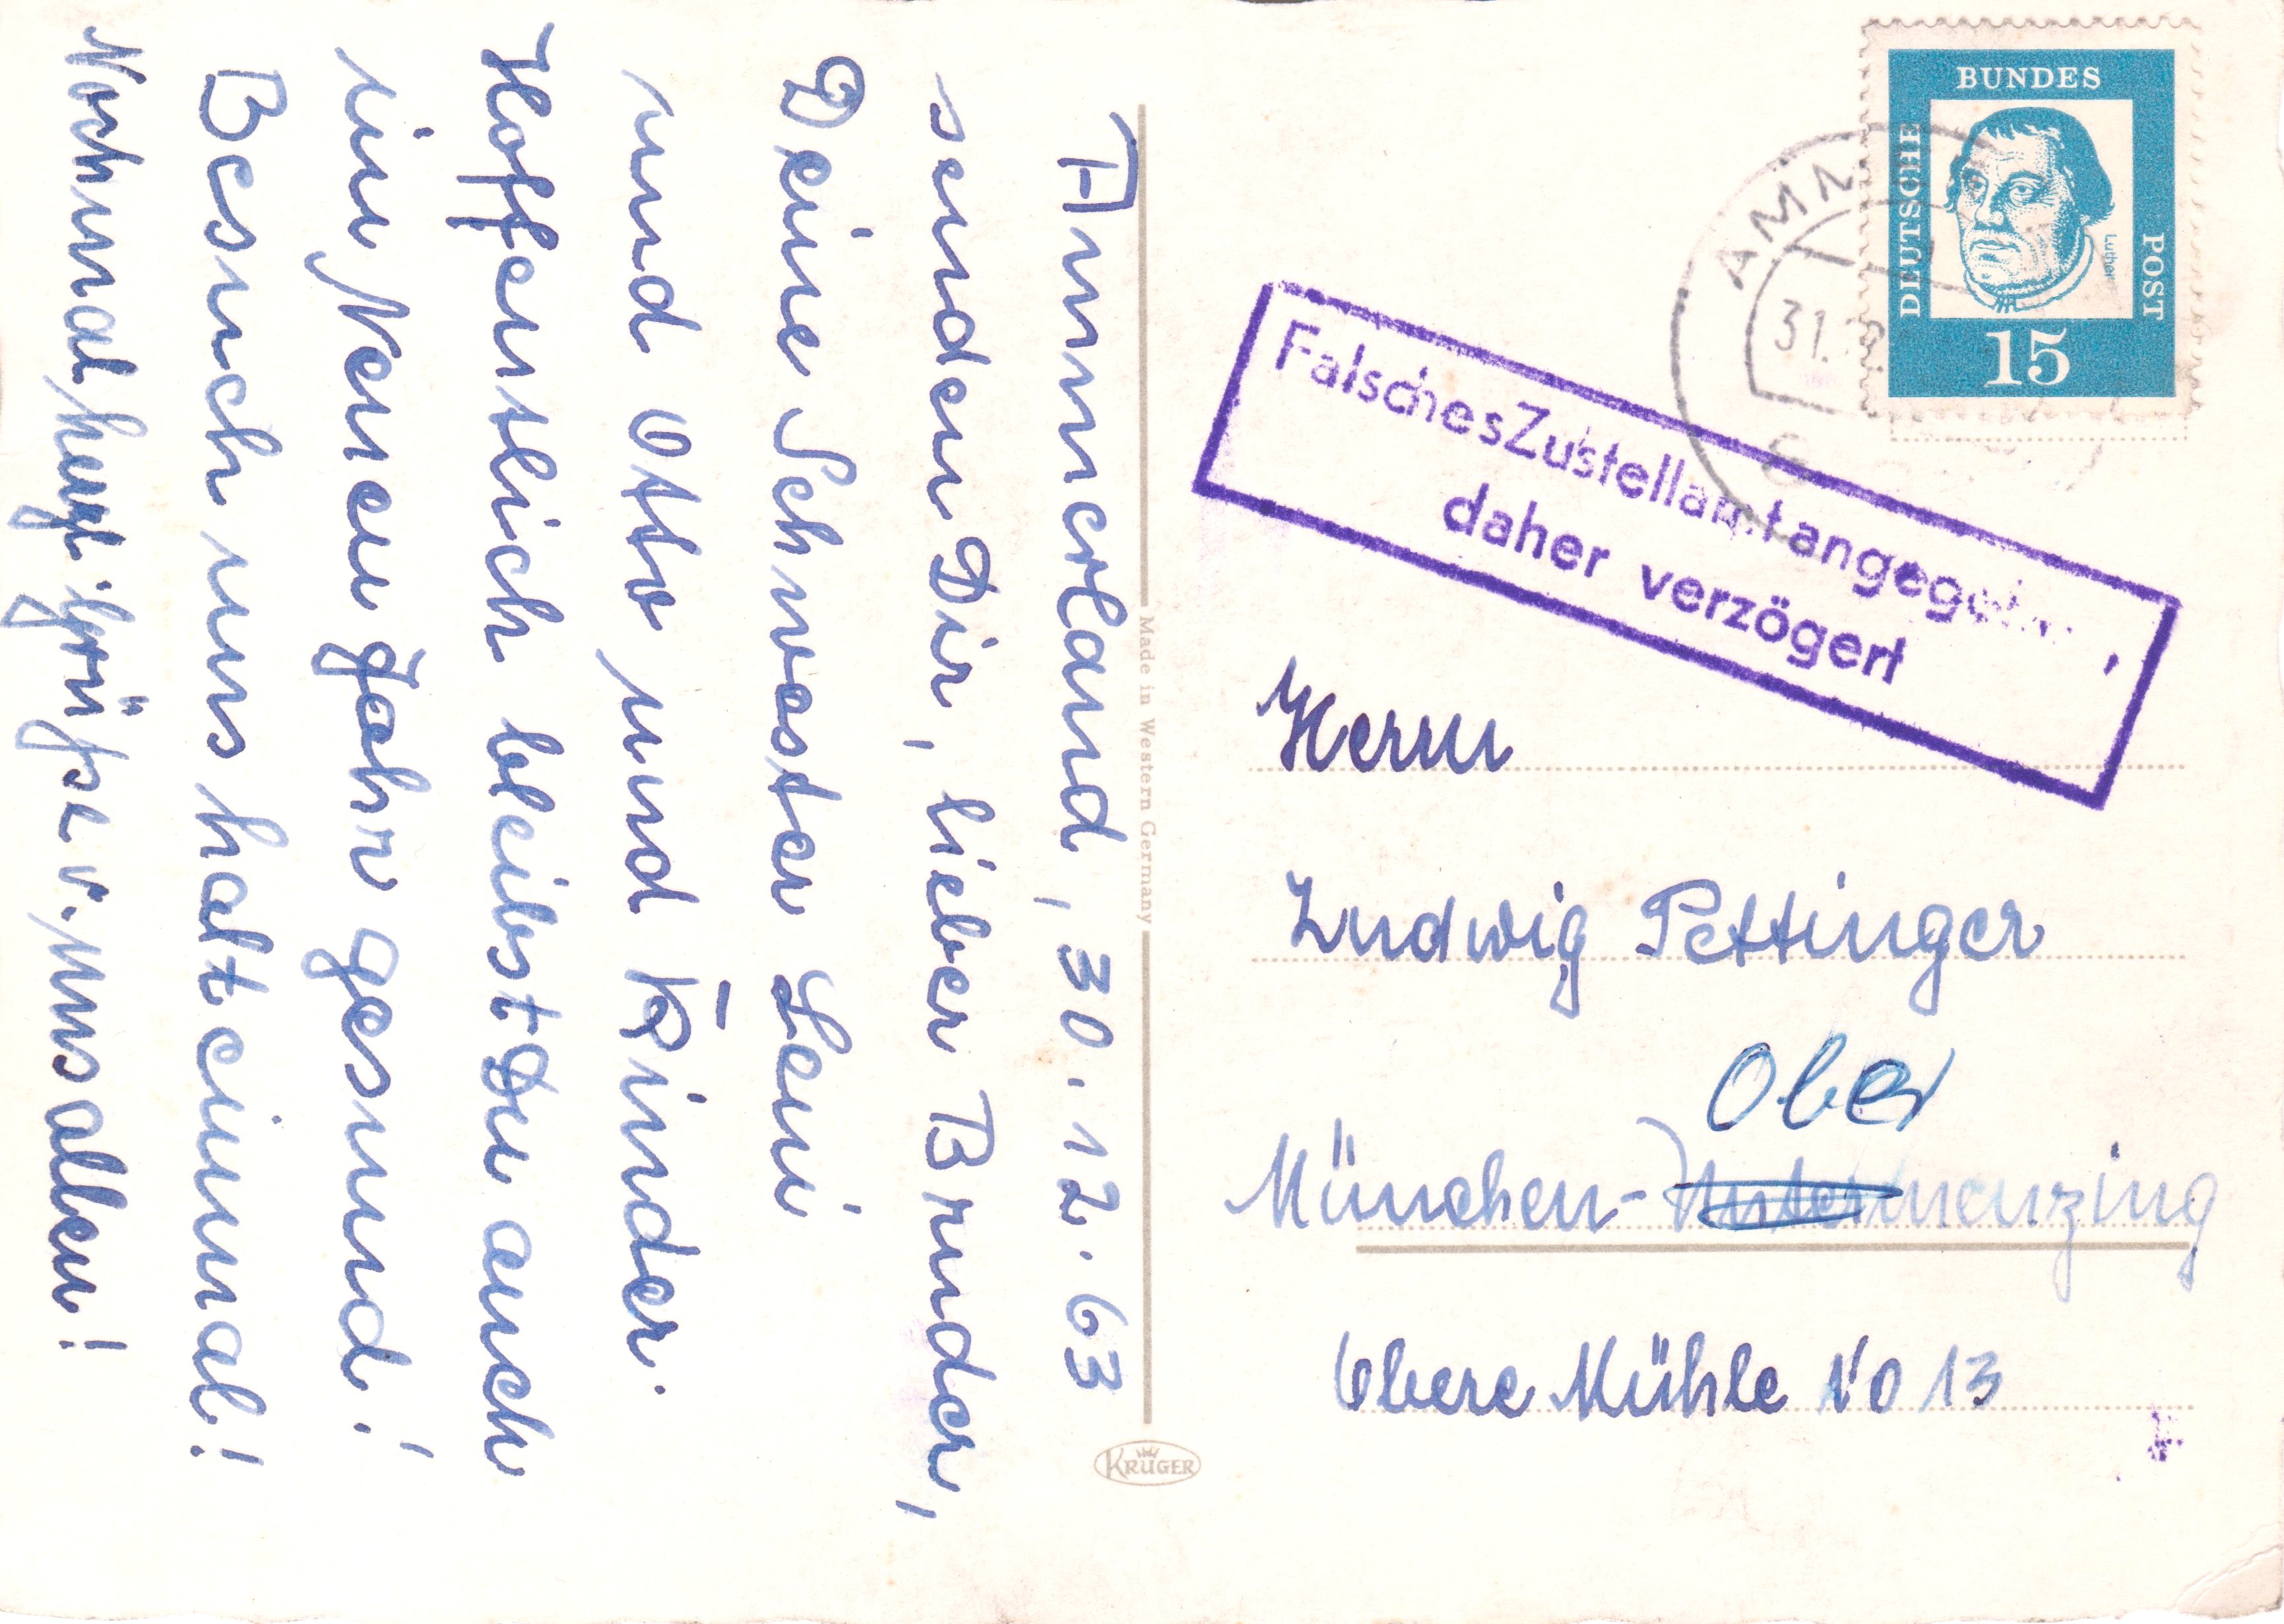 Ammerland, 30.12.63
senden Dir, lieber Bruder,
Deine Schwester Leni
und Otto und Kinder.
Hoffentlich bleibst Du auch
im Neuen Jahr gesund!
Besuch uns halt einmal!
Nochmal herzl. Grüße v. uns allen!
Made in Western Germany
KRÜGER
DEUTSCHE
BUNDES
POST
Luther
15
31.
Falsches Zustellamt angegeben,
daher verzögert
Herrn
Ludwig Pettinger
Ober
München-Untermenzing
Obere Mühle No 13